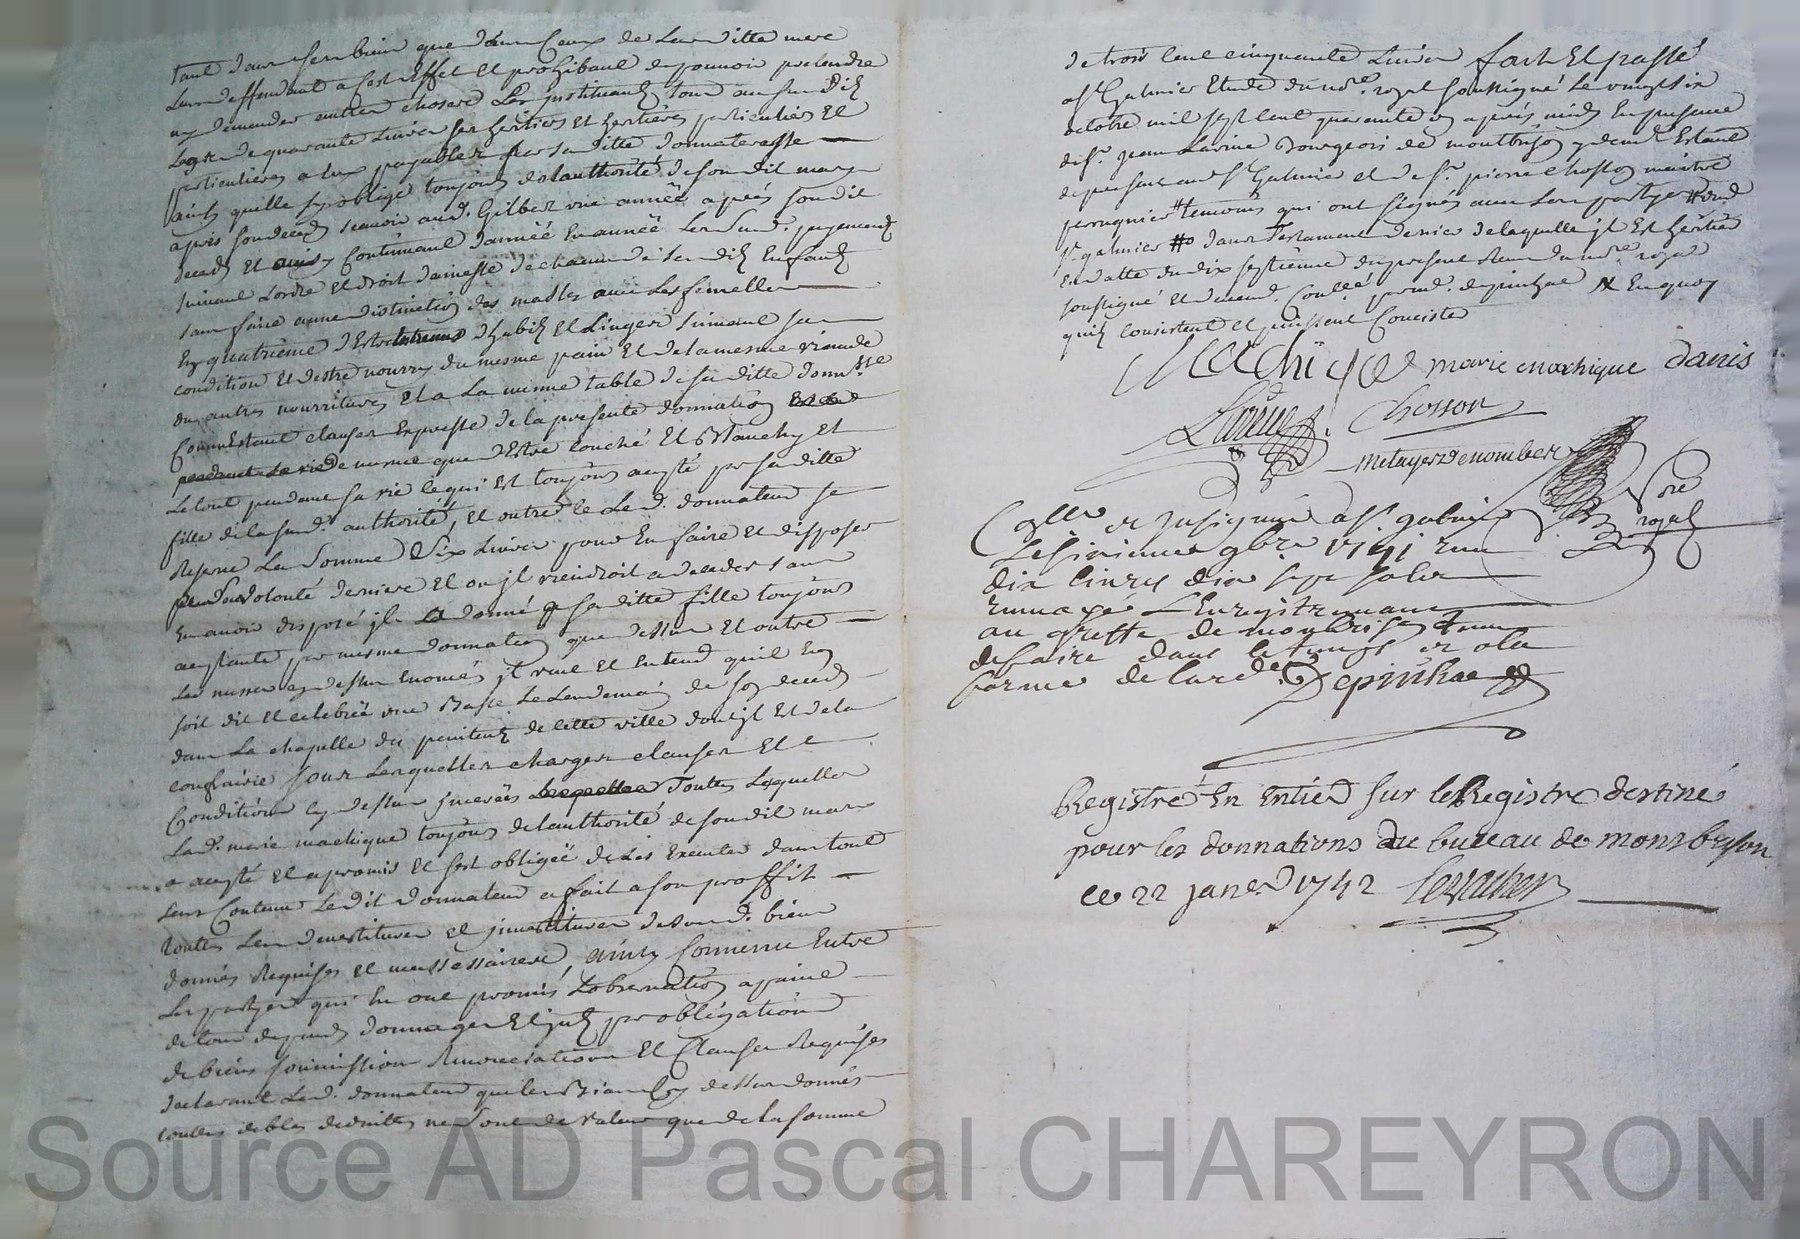 tant dans ses biens que dans Ceux de leur ditte mere
leur deffendant a cest Effet Et prohibant de pouvoir pretendre
ny demander autres choses Les instituants tous au susdits
legs de quarante Livres ses hertiers Et hertieres particuliers Et
particulieres a Eux payables par sa ditte donnateresse
ainsy quille sy oblige toujours de lauthorité de son dit mary
apres son deced scavoir aud. Gilbert une année apres son dit
deced Et ainsy Continuant dannéé En annéé Les sud. payements
suivant Lordre Et droit dainesse de chacun de Ses dits Enfants
sans faire aucune distinction des masles avec Les femelles
En quatrieme dEstre Entretenus dhabits Et Linges suivant sa
condition Et destre nourry du mesme pain Et de la mesme viande
ou autres nourritures Et a La mesme table de sa ditte donn.sse
Comme Estant clauses Expresse de la presente donnation
de mesme que dEstre couché Et Blanchy Et
Le tout pendant sa vie lequi Est toujours acepté par sa ditte
fille de la sud. authorité, Et outre le Led. donnateur se
reserve La Somme Dix Livres pour En faire et disposer
volonté derniere Et ou jl viendroit a deceder sans
En avoir disposé jl a donné a sa ditte fille toujours
aceptante par mesme donnation que dessus Et outre
Les messes cy dessus Enoncés jl veut Et Entend quil En
soit dit Et celebréé une Basse Le Lendemain de son deced
dans La chapelle des penitents de cette ville dont jl Est de la
confrairie sous Lesquelles charges clauses Et
Conditions cy dessus inserées Toutes Lesquelles
Lad. marie machique toujours de lauthorité de son dit mary
a acepté Et a promis Et sest obligéé de Les Executer dans tout
leur Contenu Ledit donnateur a fait a son proffit
toutes Les devestitures Et jnvestitures desdis d. biens
donnés Requises Et necessaires, ainsy Convenu Entre
Les partyes qui En ont promis Lobservation a paine
de tous depends dommages Et jnts par obligation
de biens soumission Renonciations Et Clauses Requises
declarant Led. donnateur que les Biens Cy dessus donnés
toutes debtes deduites ne Sont de valeur que de la somme
de trois Cent cinquante Livres fait Et passé
a St Galmier Etude du nore. royal soussigné Le vingtsix
octobre mil sept Cent quarante un apres midy En presence
de sr. Jean Larive Bourgeois de montbrison y demt. Estant
de present aud St Galmier et de sr. pierre Chosson maitre
perruquier # temoins qui ont signés avec Les partyes # dud
St. galmier #o dans Testament dernier de laquelle jl Est hertier
En datte du dix septieme du present Reçu du nore. royal
soussigné Et deuemt. Conllé. par md. depinhac # En quoy
quils consistent et puissent Concister
Machique marie machique danis
Larive Chosson
Metayer de nombre Nore
royal
Conllé et Jnsignué a St. galmier
Le sixieme 9bre 1741 Reçu
dix livres dix sept sols
Renvoyé Lenregistrement
au greffe de monbrison pour
de faire dans le temps et a la
forme de lord.ce Depinhac
Registré En Entier sur le Registre destiné
pour les donnations Au bureau de montbrison
ce 22 janer. 1742 Levacher
Source AD Pascal CHAREYRON